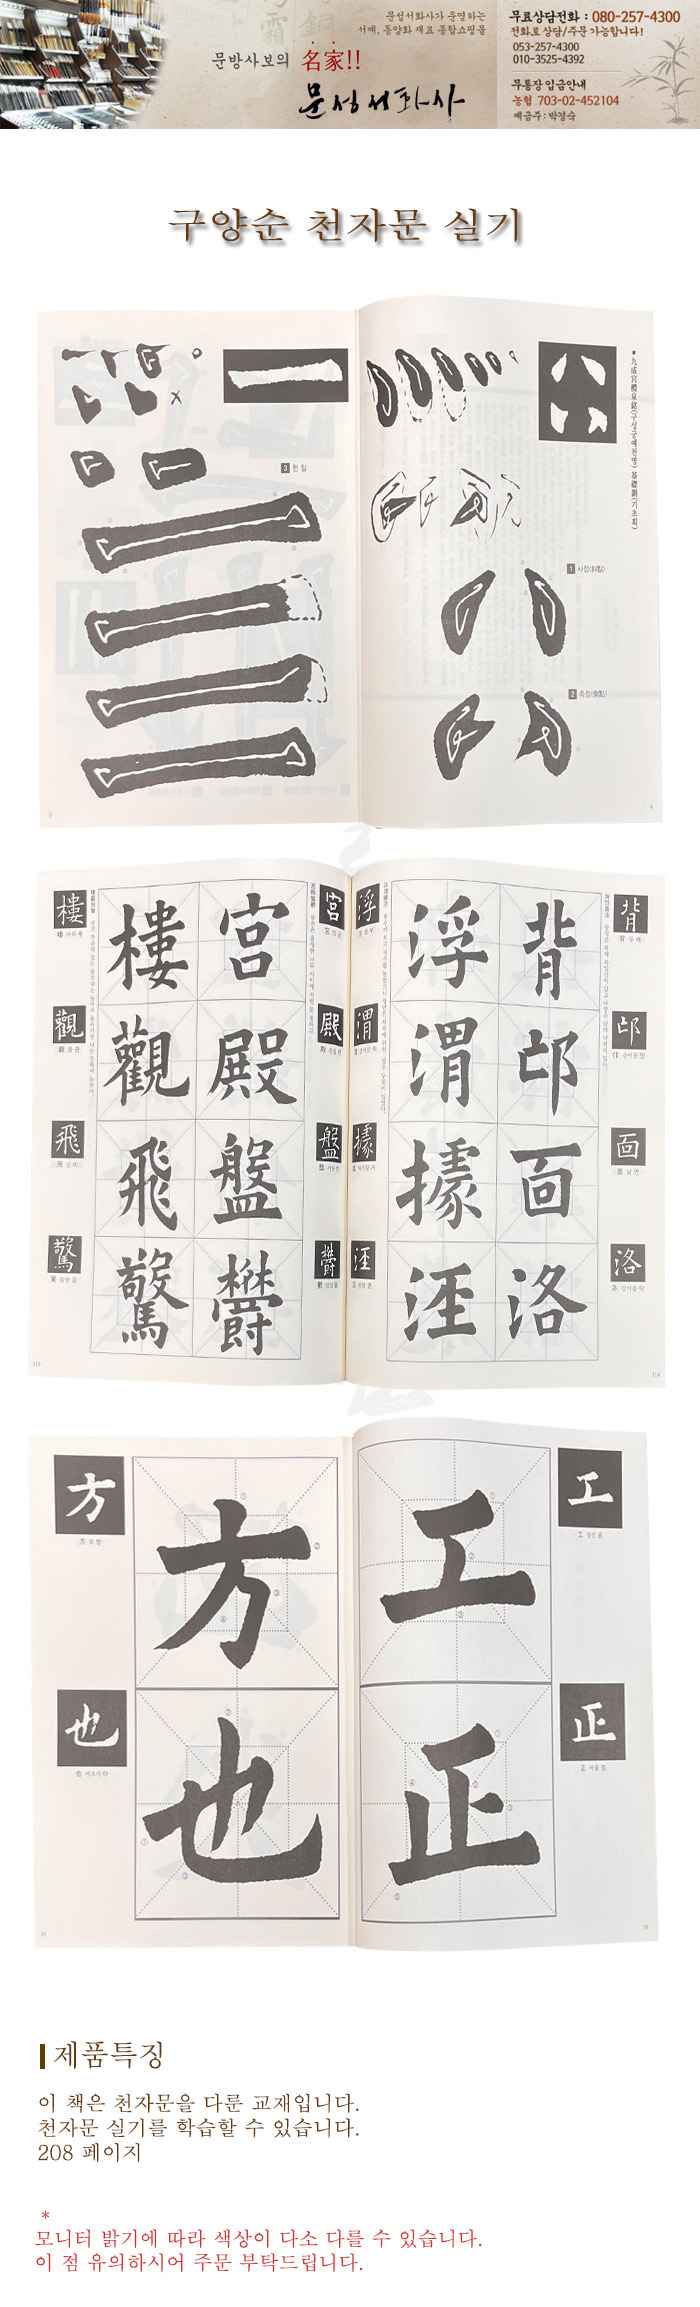 문성서화사가 운영하는
서예, 동양화 재료 종합쇼핑몰
문방사보의 名家!!
문성서화사
무료상담전화 : 080-257-4300
전화로 상담/주문 가능합니다!
053-257-4300
010-3525-4392
무통장 입금안내
농협 703-02-452104
예금주 : 박경숙
구양순 천자문 실기
■ 九成宮醴泉銘(구성궁예천명) 基礎劃(기초획)
1 사점(斜點)
2 측점(側點)
4
3 한일
5
背邙面洛
浮渭據涇
114
宮殿盤鬱
樓觀飛驚
115
工
工 장인 공
正
正 바를 정
18
方
方 모 방
也
也 어조사 야
19
제품특징
이 책은 천자문을 다룬 교재입니다.
천자문 실기를 학습할 수 있습니다.
208 페이지
*
모니터 밝기에 따라 색상이 다소 다를 수 있습니다.
이 점 유의하시어 주문 부탁드립니다.